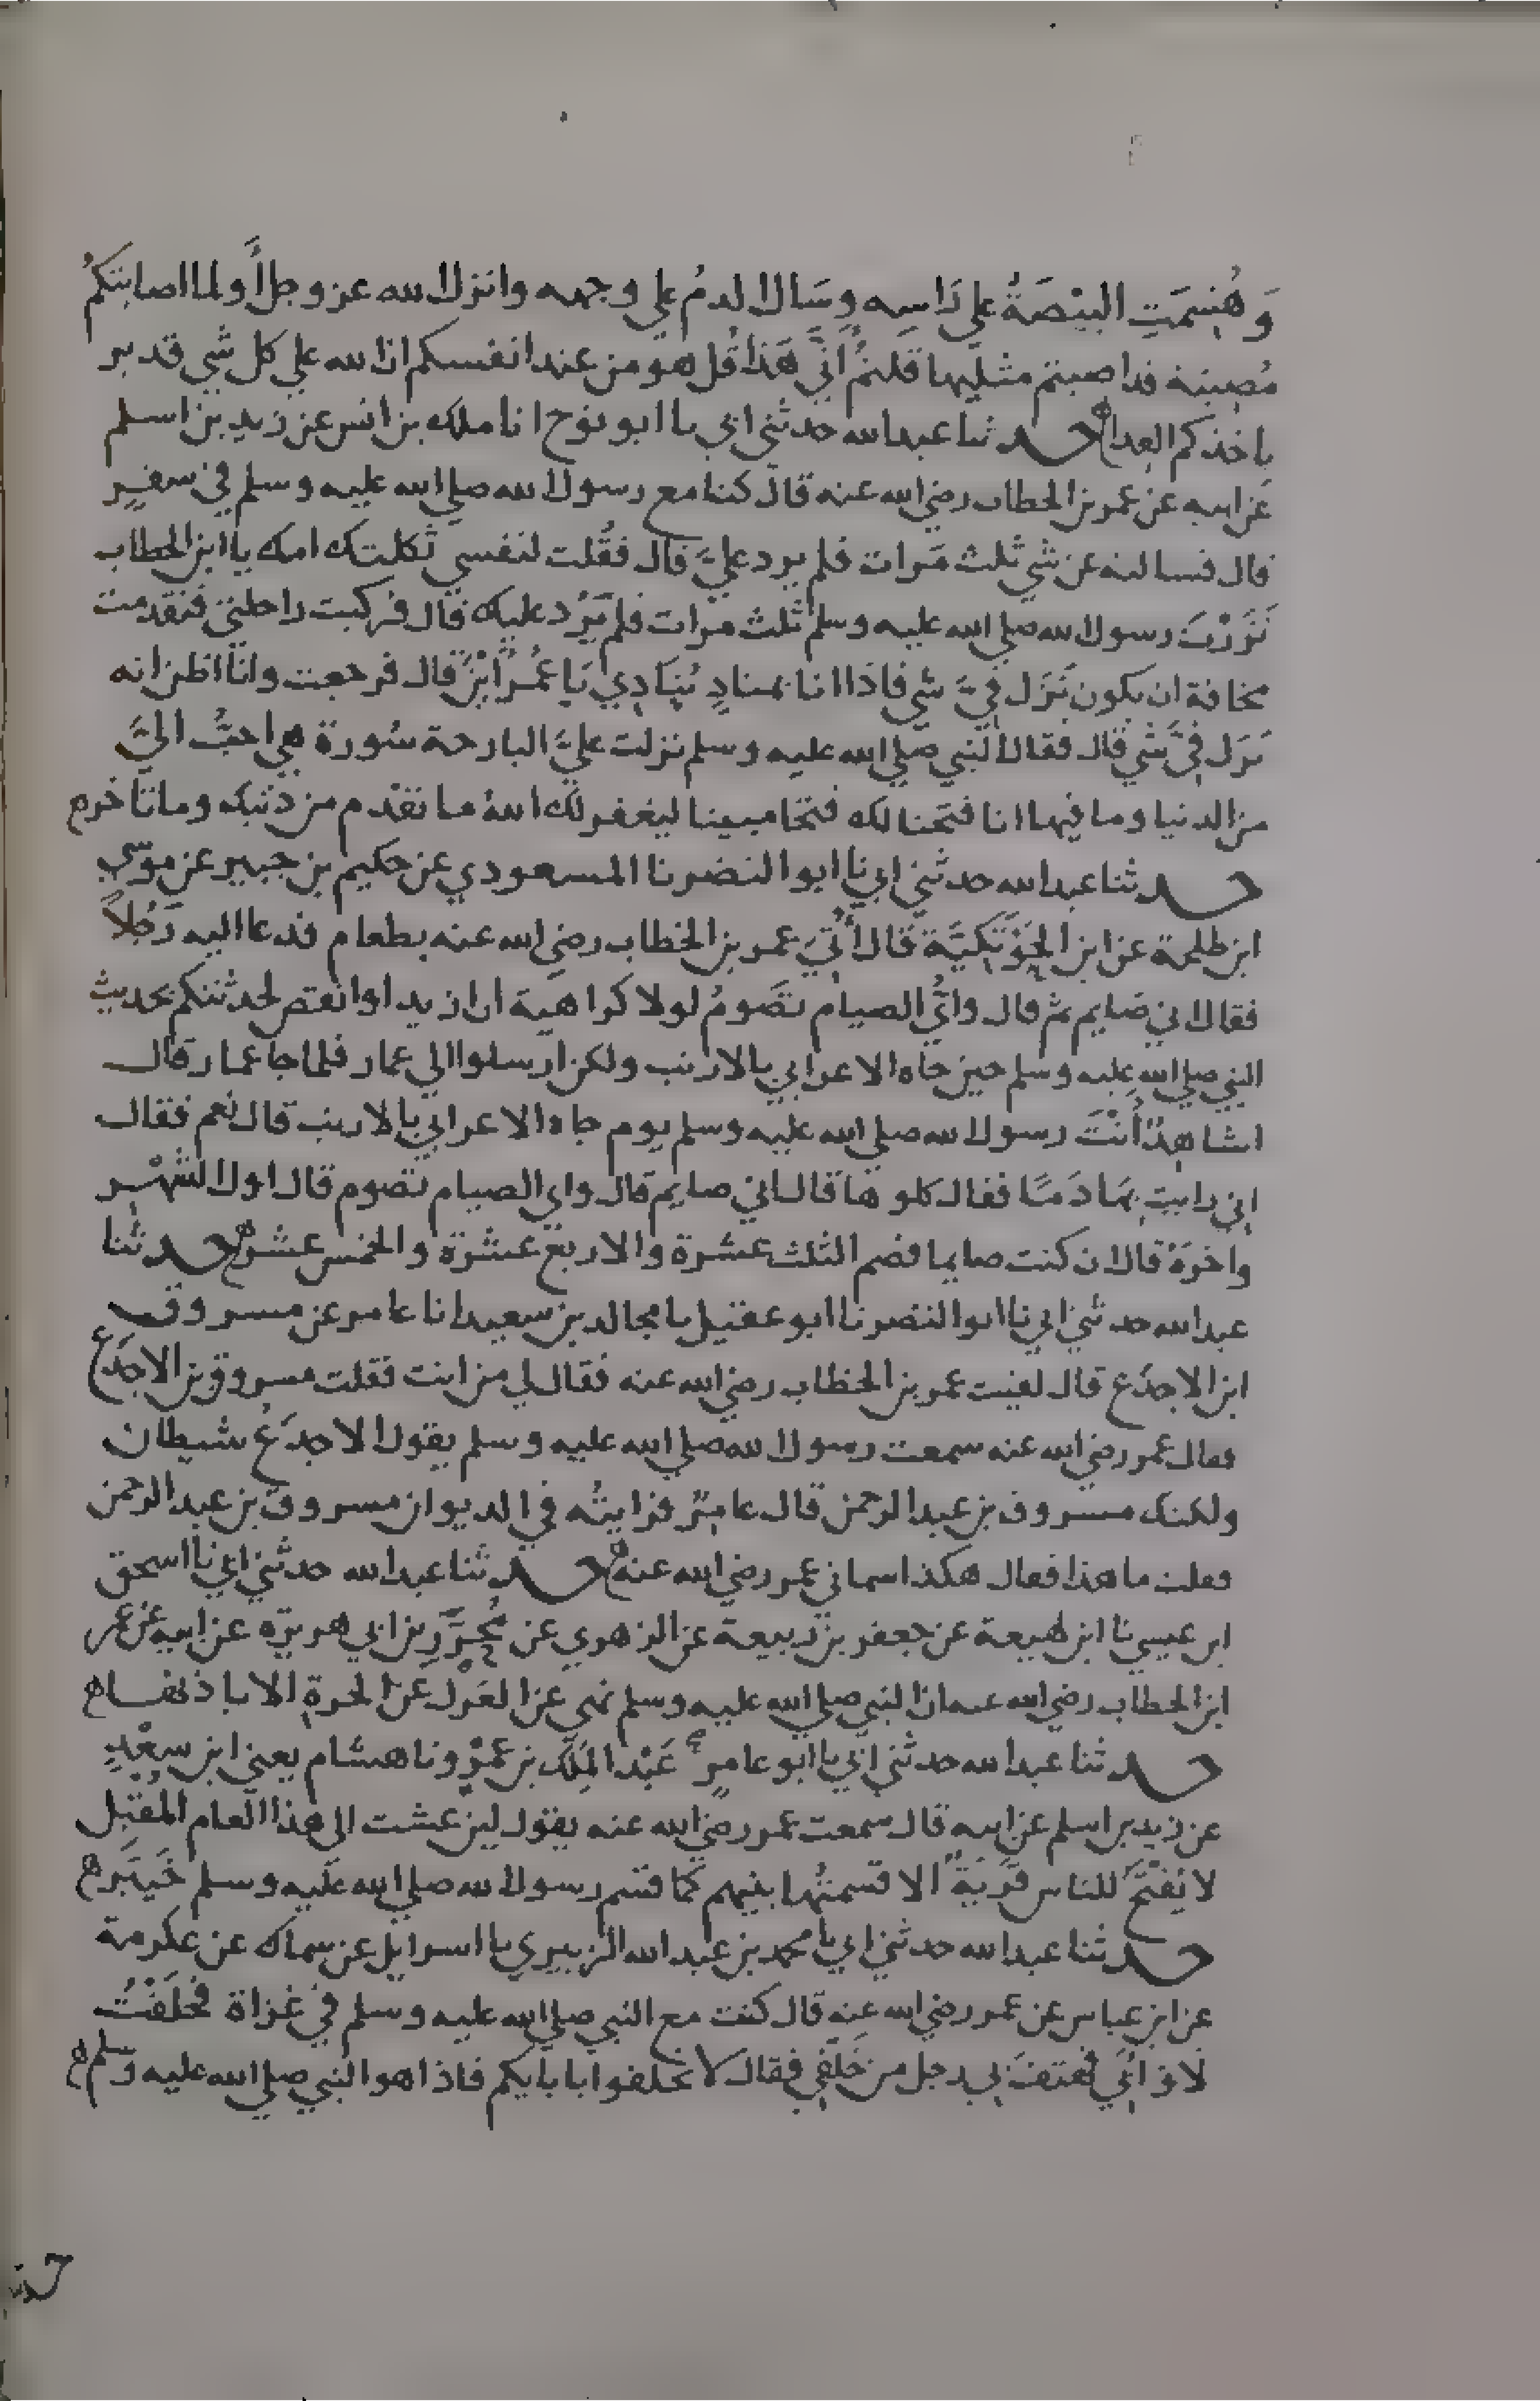 وَهُشِمَتِ البَيْضَةُ علي رَاسِه وسَال الدمُ علي وجهه وانزل الله عز وجل أَوَلما اصابتكمُ
مُصيبة قد اصبتم مثلَيها قلتمُ أنَّى هَذا قُل هو من عند انفسكم ان الله علي كل شي قدير
باخذكم الفدا ه حدثنا عبد الله حدثني ابي نا ابو نوح انا ملك بن انس عن زيد بن اسلم
عن ابيه عن عمر بن الخطاب رضي الله عنه قال كنا مع رسول الله صلي الله عليه وسلم في سفرٍ
قال فسالته عن شي ثلث مَرات فلم يرد عليَّ قال فقُلت لنفسي ثكلتك امك يا ابن الخطاب
نَزَرْتَ رسول الله صلي الله عليه وسلم ثلث مرات فلم يَرُد عليك قال فركبت راحلتي فتقدمت
مخافة ان يكون نَزَل فيَّ شي فاذا انا بمنادٍ يُنَادِي يَا عُمرُ أيْنَ قال فرجعت وانا اظن انه
نَزل فيَّ شي قال فقال النبي صلي الله عليه وسلم نزلت عليَّ البارحة سُورة هي احبُّ اليَّ
من الدنيا وما فيها انا فتحنا لك فتحا مبينا ليغفر لك اللهُ ما تقدم من ذنبك وما تاخر ه
حدثنا عبد الله حدثني ابي نا ابو النضر نا المسعودي عن حكيم بن جبير عن موسي
ابن طلحة عن ابن الحَوْتَكيَّة قال أُتِيَ عمر بن الخطاب رضي الله عنه بطعام فدعا اليه رَجُلاً
فقال اني صَايم ثم قال وايُّ الصيام تصَومُ لولا كراهيَة ان ازيد او انقص لحدثتكم بحديث
النبي صلي الله عليه وسلم حين جاه الاعرابي بالارنب ولكن ارسلوا الي عمار فلما جا عمار قال
اشاهدٌ أنْتَ رسول الله صلي الله عليه وسلم يوم جاه الاعرابي بالارنب قال نعم فقال
اني رايت بِهَا دَمًا فقال كلوها قال اني صايم قال واي الصيام تصوم قال اول الشهْر
واخرَهُ قال ان كنت صايما فصم الثلث عشرة والاربع عشرة والخمس عشرة ه حدثنا
عبد الله حدثني ابي نا ابو النضر نا ابو عقيل نا مجالد بن سعيد انا عامر عن مسروق
ابن الاجدَع قال لقيت عمر بن الخطاب رضي الله عنه فقال لي من انت فقلت مسروق بن الاجدَع
فقال عمر رضي الله عنه سمعت رسول الله صلي الله عليه وسلم يقول الاجدَعُ شيطان
ولكنك مسروق بن عبد الرحمن قال عامرٌ فرايتُه في الديوان مسروق بن عبد الرحمن
فقلت ما هذا فقال هكذا سماني عمر رضي الله عنه ه حدثنا عبد الله حدثني ابي نا اسحق
ابن عيسي نا ابن لهيعة عن جعفر بن ربيعة عن الزهري عن مُحَرَّرِ بن ابي هريرَه عن ابيه عن عمر
ابن الخطاب رضي الله عنه ان النبي صلي الله عليه وسلم نهي عن العَزْل عن الحرةِ الا باذنها ه
حدثنا عبد الله حدثني ابي نا ابو عامرٍ عَبْد المَلَك بن عَمْرٍو نا هشام يعني ابن سعْدٍ
عن زيد بن اسلم عن ابيه قال سمعت عمر رضي الله عنه يقول لين عشت الي هذا العام المُقْبل
لا يُفتَحُ للناس قَرْيَةٌ الا قسمتُها بينهم كما قسم رسول الله صلي الله عليه وسلم خَيْبَر ه
حدثنا عبد الله حدثني ابي نا محمد بن عبد الله الزبيري نا اسرايل عن سماك عن عكرمة
عن ابن عباس عن عمر رضي الله عنه قال كنت مع النبي صلي الله عليه وسلم في غزاة فحلَفْتُ
لا وابي فهتفَ بي رجل من خَلْفي فقال لا تحلفوا بابايكم فاذا هو النبي صلي الله عليه وسلم ه